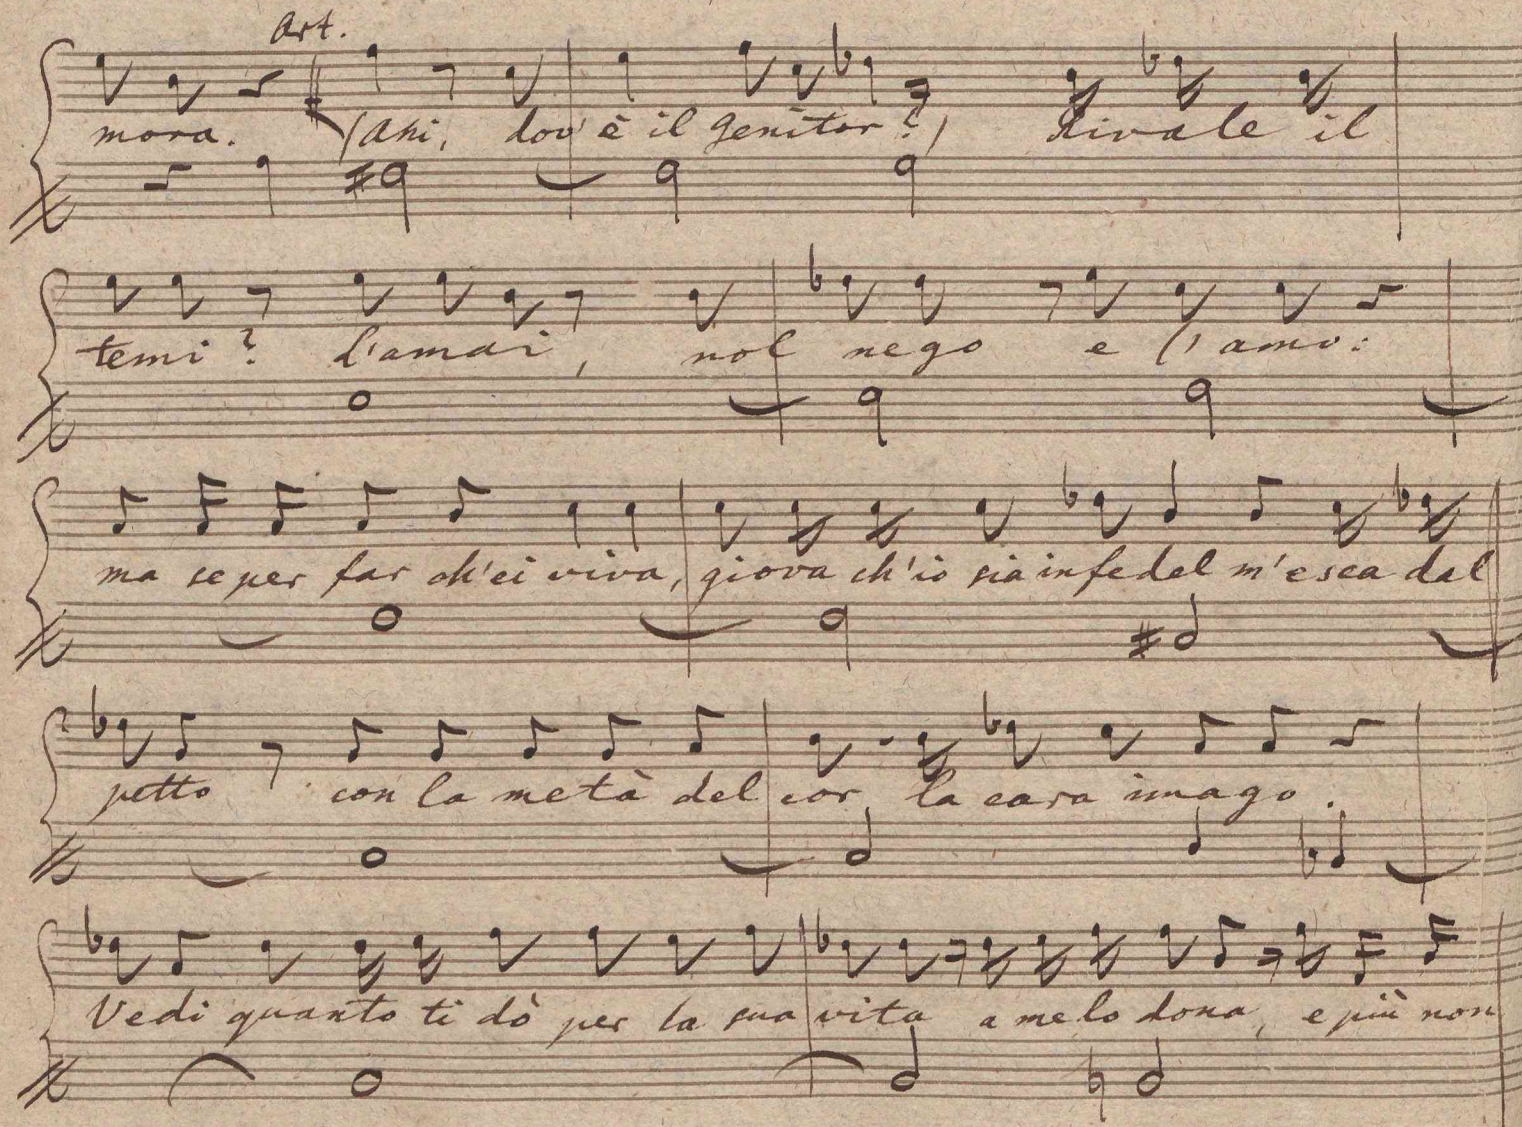 Art.
mora. (Ahi, dov' è il genitor?) Rivale il
temi? L'amai, nol nego e l'amo:
ma se per far ch'ei viva, giova ch'io sia infedel m'esca dal
petto con la metà del cor, la cara imago.
Vedi quanto ti dò per la sua vita a me lo dona, e più non